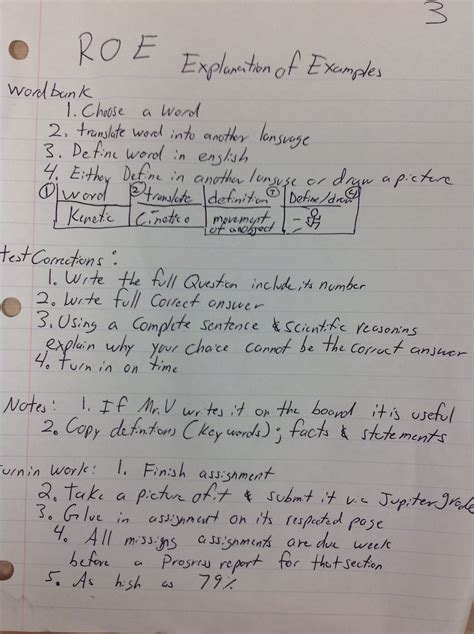 3
ROE Explanation of Examples
Wordbank
1. Choose a word
2. translate word into another language
3. Define word in english
4. Either Define in another languse or draw a picture
① word ② translate definition ③ Define/draw ④
Kenetic Cinetico movemynt of an object
test Corrections:
1. Write the full Question include its number
2. Write full Correct answer
3. Using a Complete sentence & scientific reasoning
explain why your choice cannot be the correct answer
4. Turn in on time
Notes: 1. If Mr.V writes it on the board it is useful
2. Copy definitions (key words); facts & statements
urnin work: 1. Finish assignment
2. Take a picture of it & submit it via Jupitergrade
3. Glue in assignment on its respected page
4. All missing assignments are due week
before a Progress report for that section
5. As high as 79%